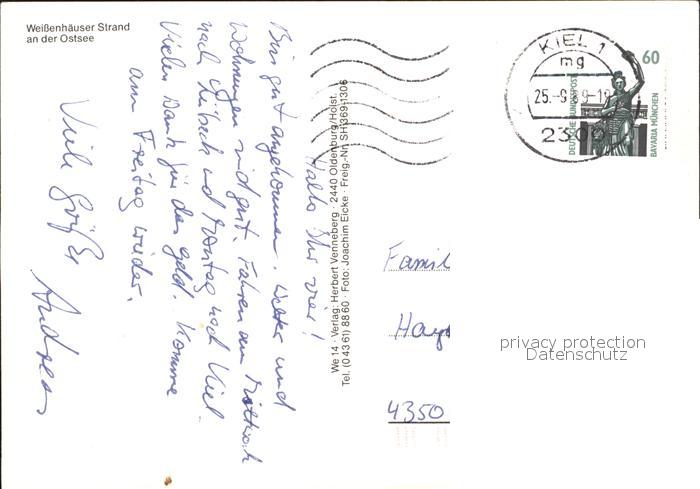 Weißenhäuser Strand
an der Ostsee
Hallo Ihr vier!
Bin gut angekommen. Wetter und
Wohnungen sind gut. Fahren am Mittwoch
nach und Montag nach Kiel.
Vielen Dank für das Geld. Komme
am Freitag wieder.
Viele Grüße
Andreas
We 14 · Verlag: Herbert Venneberg · 2440 Oldenburg/Holst.
Tel. (0 43 61) 88 60 · Foto: Joachim Eicke · Freig.-Nr. SH 369-1306
KIEL 1
mg
25.-9.89-19
2300
60
DEUTSCHE BUNDESPOST
BAVARIA MÜNCHEN
Famil
4350
privacy protection
Datenschutz